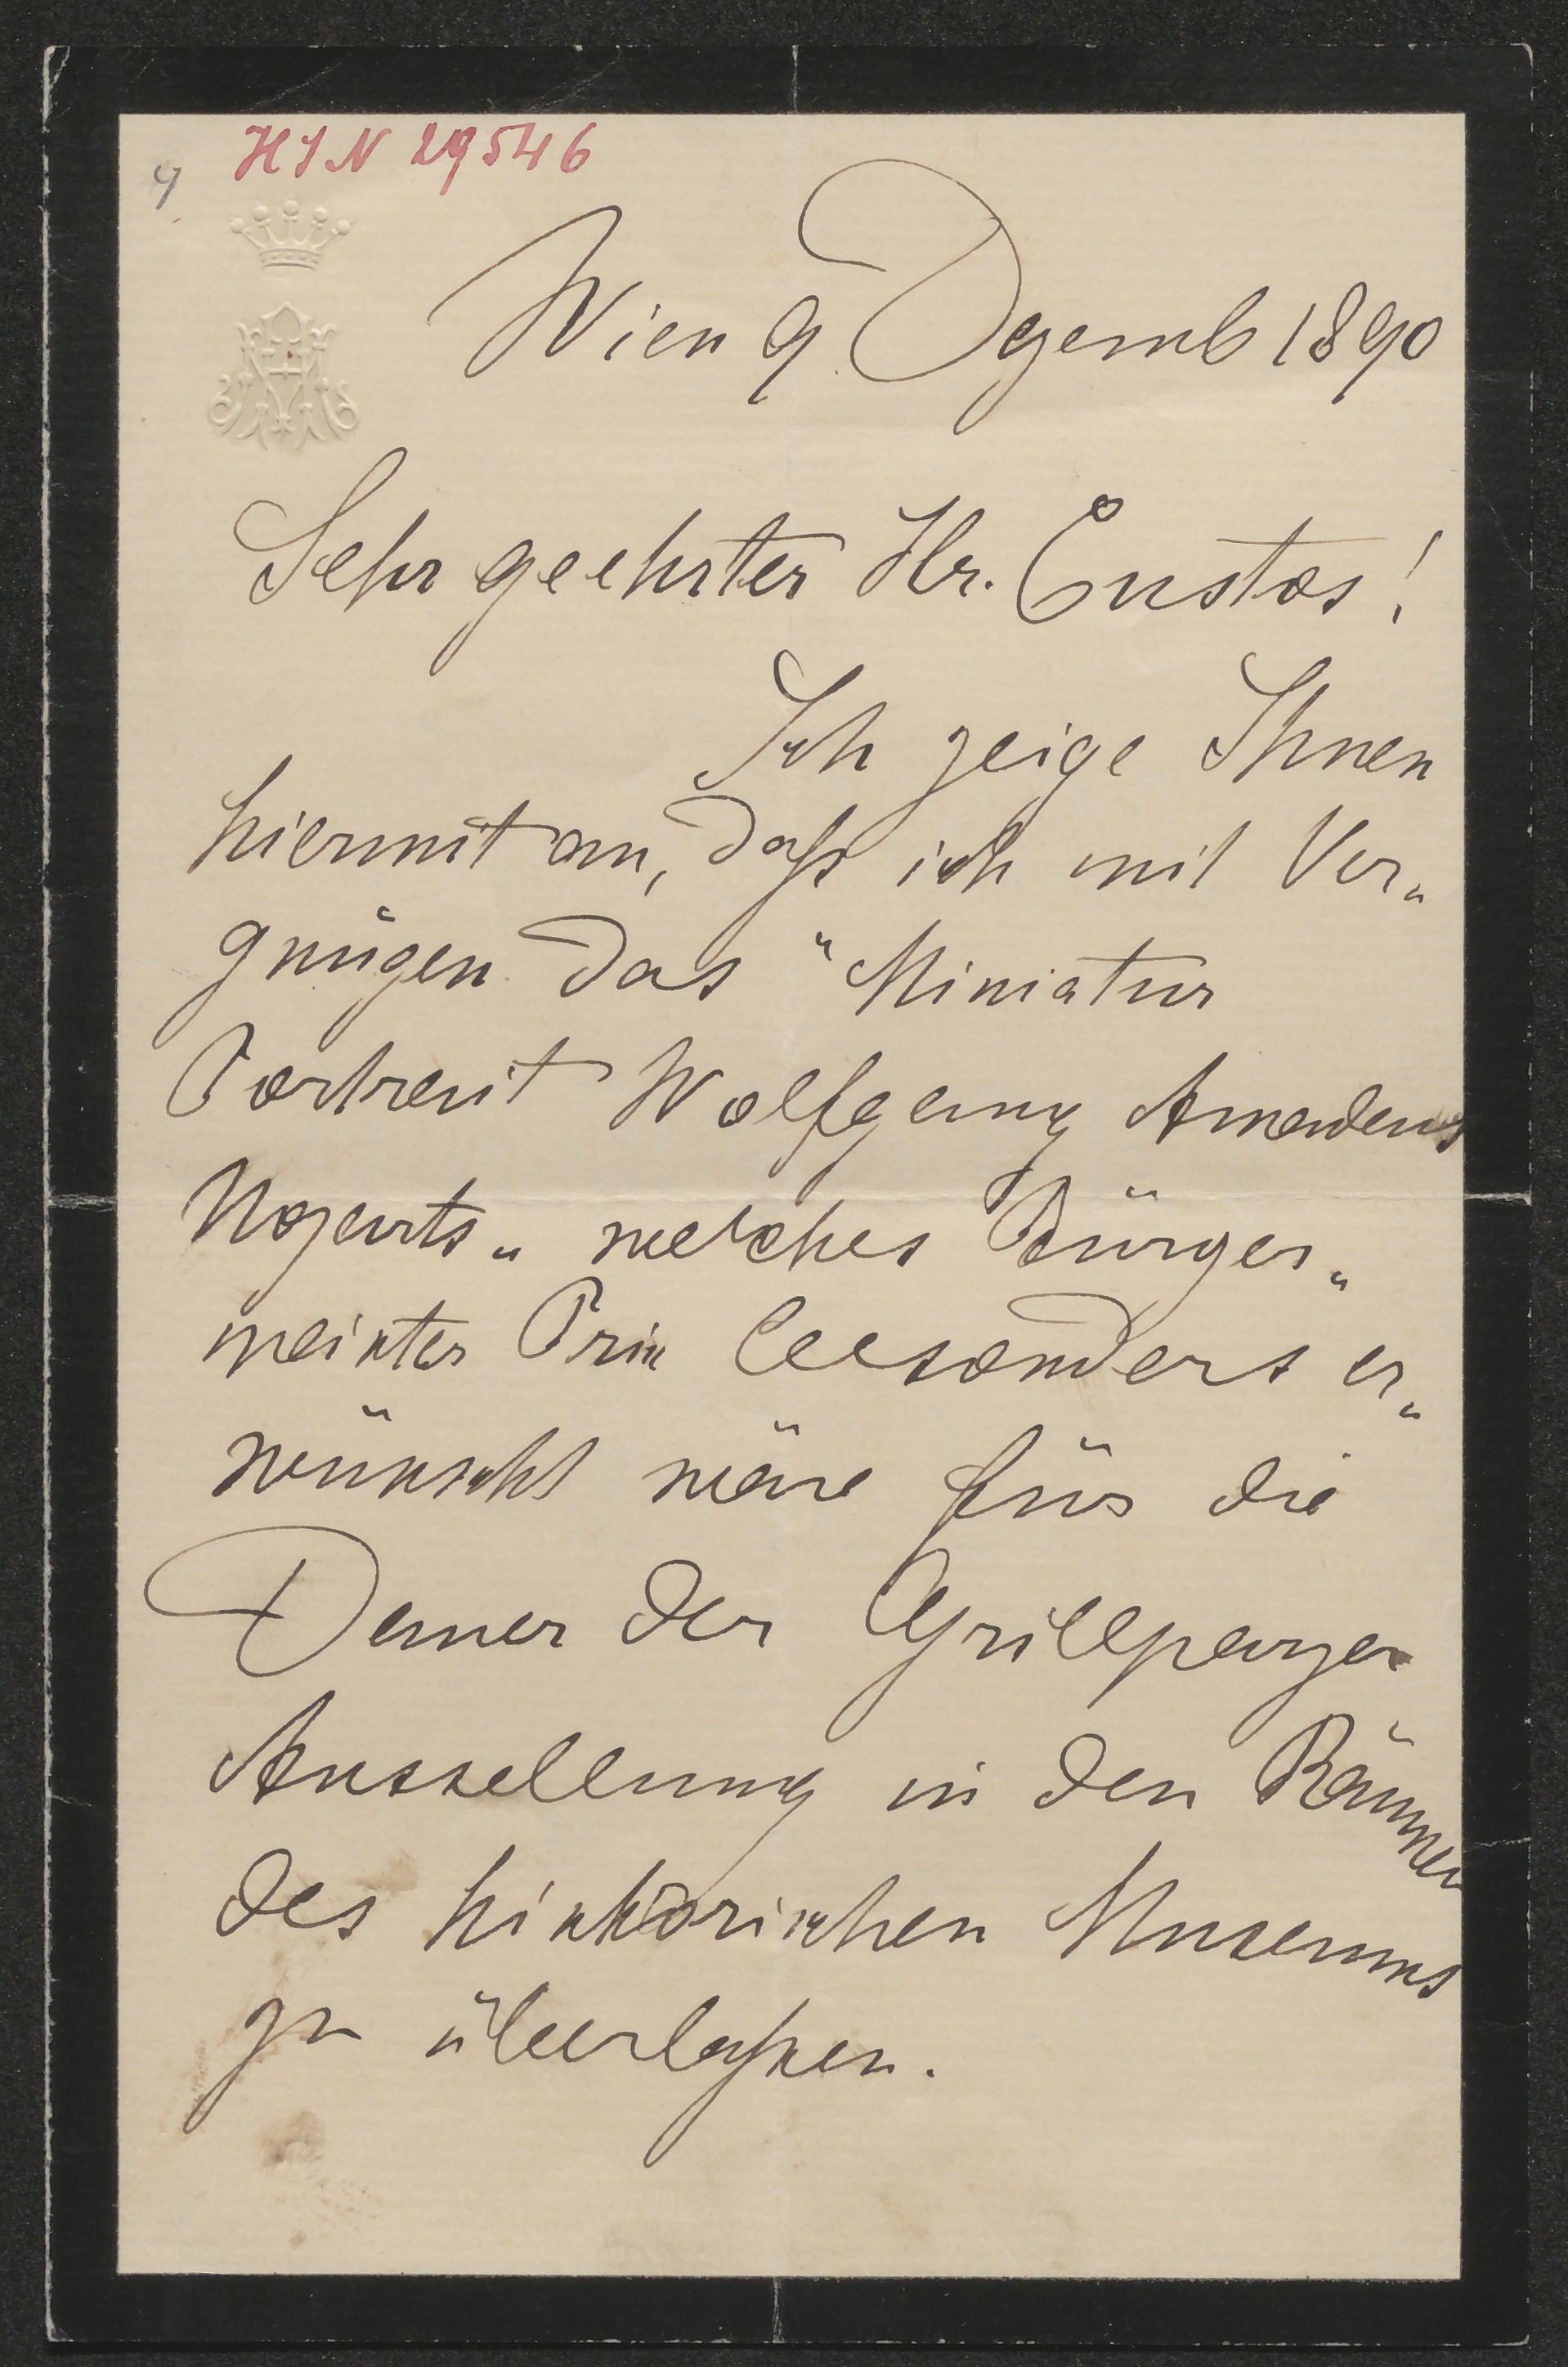 HIN 29546
Wien 9 Dzemb 1890
Sehr geehrter Hr. Custos!
Ich zeige Ihnen
hiermit an, daß ich mit Ver„
gnügen das "Miniatur
Portrait Wolfgang Amadeus
Mozarts„ welches Bürger„
meister Prix besonders er„
wünscht wäre für die
Dauer der Grillparzer
Ausstellung in den Räumen
des historischen Museums
zu überlaßen.